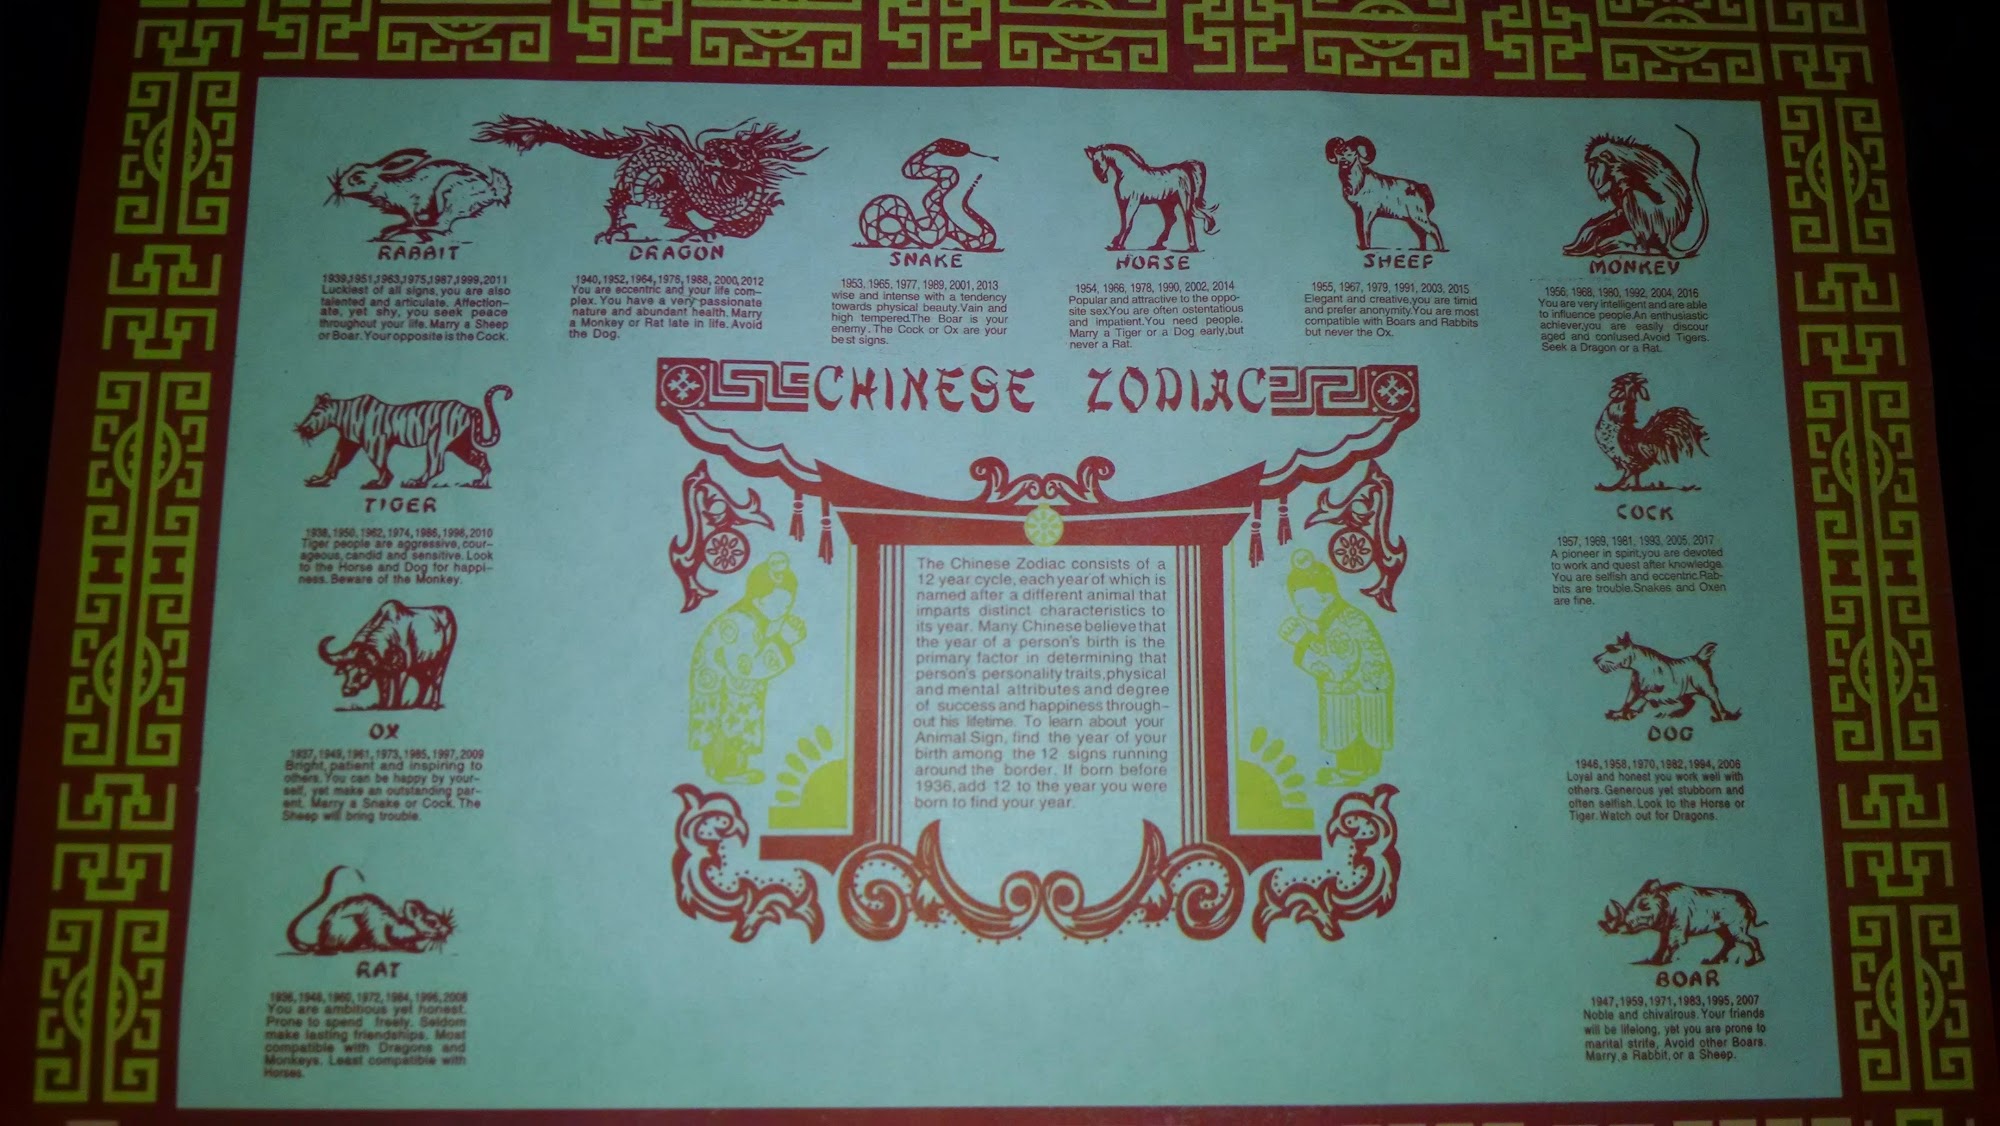 RABBIT
1939,1951,1963,1975,1987,1999,2011
Luckiest of all signs, you are also
talented and articulate. Affection-
ate, yet shy, you seek peace
throughout your life. Marry a Sheep
or Boar. Your opposite is the Cock.
DRAGON
1940, 1952, 1964, 1976, 1988, 2000, 2012
You are eccentric and your life com-
plex. You have a very passionate
nature and abundant health. Marry
a Monkey or Rat late in life. Avoid
the Dog.
SNAKE
1953, 1965, 1977, 1989, 2001, 2013
wise and intense with a tendency
towards physical beauty. Vain and
high tempered.The Boar is your
enemy. The Cock or Ox are your
best signs.
HORSE
1954, 1966, 1978, 1990, 2002, 2014
Popular and attractive to the oppo-
site sex.You are often ostentatious
and impatient.You need people.
Marry a Tiger or a Dog early,but
never a Rat.
SHEEP
1955, 1967, 1979, 1991, 2003, 2015
Elegant and creative,you are timid
and prefer anonymity.You are most
compatible with Boars and Rabbits
but never the Ox.
MONKEY
1956, 1968, 1980, 1992, 2004, 2016
You are very intelligent and are able
to influence people.An enthusiastic
achiever,you are easily discour
aged and confused.Avoid Tigers.
Seek a Dragon or a Rat.
CHINESE ZODIAC
TIGER
1938, 1950, 1962, 1974, 1986, 1998, 2010
Tiger people are aggressive, cour-
ageous, candid and sensitive. Look
to the Horse and Dog for happi-
ness. Beware of the Monkey.
COCK
1957, 1969, 1981, 1993, 2005, 2017
A pioneer in spirit,you are devoted
to work and quest after knowledge.
You are selfish and eccentric.Rab-
bits are trouble.Snakes and Oxen
are fine.
The Chinese Zodiac consists of a
12 year cycle, each year of which is
named after a different animal that
imparts distinct characteristics to
its year. Many Chinese believe that
the year of a person's birth is the
primary factor in determining that
person's personality traits,physical
and mental attributes and degree
of success and happiness through-
out his lifetime. To learn about your
Animal Sign, find the year of your
birth among the 12 signs running
around the border. If born before
1936, add 12 to the year you were
born to find your year.
OX
1937, 1949, 1961, 1973, 1985, 1997, 2009
Bright, patient and inspiring to
others. You can be happy by your-
self, yet make an outstanding par-
ent. Marry a Snake or Cock. The
Sheep will bring trouble.
DOG
1946, 1958, 1970, 1982, 1994, 2006
Loyal and honest you work well with
others. Generous yet stubborn and
often selfish. Look to the Horse or
Tiger. Watch out for Dragons.
RAT
1936, 1948, 1960, 1972, 1984, 1996, 2008
You are ambitious yet honest.
Prone to spend freely. Seldom
make lasting friendships. Most
compatible with Dragons and
Monkeys. Least compatible with
Horses.
BOAR
1947, 1959, 1971, 1983, 1995, 2007
Noble and chivalrous. Your friends
will be lifelong, yet you are prone to
marital strife, Avoid other Boars.
Marry, a Rabbit, or a Sheep.